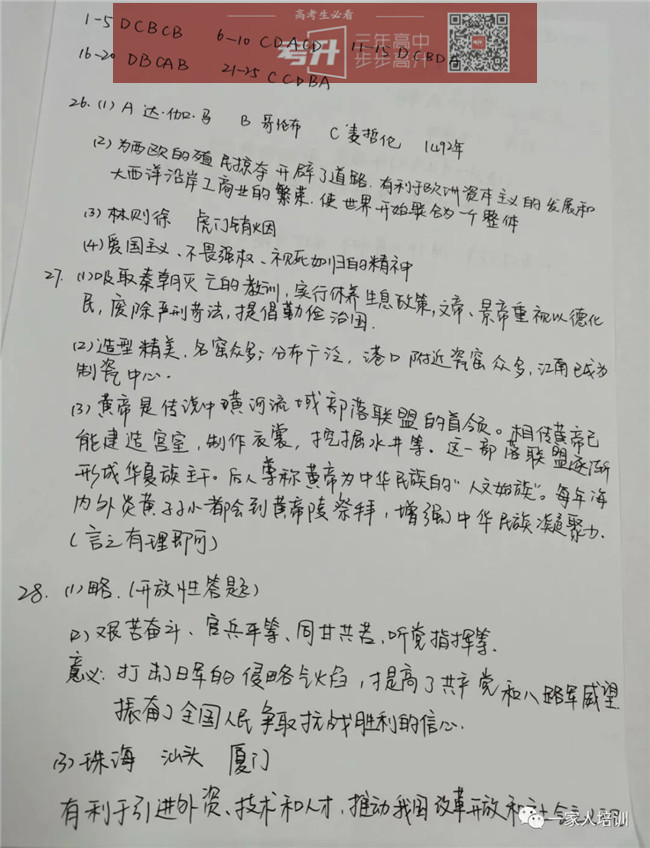 高考生必看
考升
三年高中
步步高升
1-5 DCBCB 6-10 CDACD 11-15 DCBDA
16-20 DBCAB 21-25 CCDBA
26.(1) A 达·伽·马 B 哥伦布 C 麦哲伦 1492年
(2) 为西欧的殖民掠夺开辟了道路.有利于欧洲资本主义的发展和
大西洋沿岸工商业的繁荣.使世界开始联合为一个整体
(3) 林则徐 虎门销烟
(4) 爱国主义、不畏强权、视死如归的精神
27. (1)吸取秦朝灭亡的教训,实行休养生息政策,文帝、景帝重视以德化
民,废除严刑苛法,提倡勤俭治国.
(2) 造型精美.名窑众多;分布广泛,港口附近瓷窑众多,江南已成为
制瓷中心.
(3) 黄帝是传说中黄河流域部落联盟的首领。相传黄帝已
能建造宫室,制作衣裳,挖掘水井等。这一部落联盟逐渐
形成华夏族主干。后人尊称黄帝为中华民族的“人文始族”。每年海
内外炎黄子孙都会到黄帝陵祭拜,增强中华民族凝聚力.
(言之有理即可)
28. (1) 略.(开放性答题)
(2) 艰苦奋斗、官兵平等、同甘共苦,听党指挥等.
意义:打击日军的侵略气焰,提高了共产党和八路军威望
振奋了全国人民争取抗战胜利的信心.
(3) 珠海 汕头 厦门
有利于引进外资、技术和人才,推动我国改革开放和社会主
一家人培训